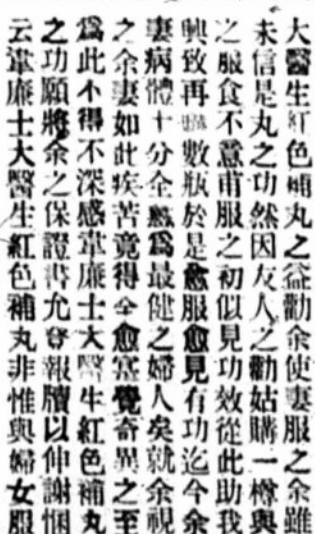 大醫生紅色補丸之益勸余使妻服之余雖
未信是丸之功然因友人之勸姑購一樽與
之服食不意甫服之初似見功效從此助我
興致再購數瓶於是愈服愈見有功迄今余
妻病體十分全愈為最健之婦人矣就余視
之余妻如此疾苦竟得全愈寔覺奇異之至
為此不得不深感韋廉士大醫生紅色補丸
之功願將余之保證書允登報牘以伸謝悃
云韋廉士大醫生紅色補丸非惟與婦女服